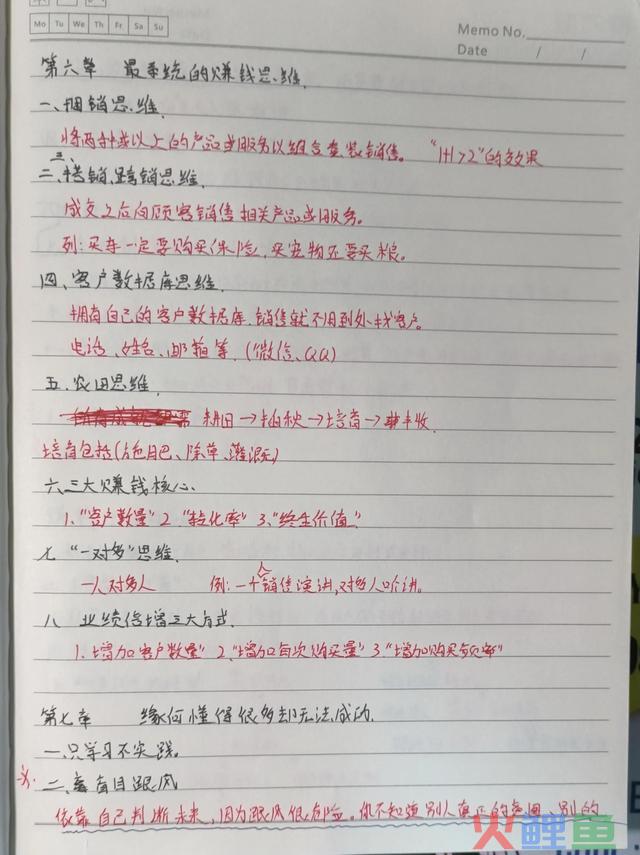 Mo Tu We Th Fr Sa Su
Memo No.
Date / /
第六章 最系统的赚钱思维
一、捆销思维
将两种或以上的产品或服务以组合套装销售。 "1+1>2"的效果
二、三、搭销、跨销思维
成交之后向顾客销售相关产品或服务。
列:买车一定要购买保险,买宠物还要买粮。
四、客户数据库思维
拥有自己的客户数据库,销售就不用到处找客户。
电话、姓名、邮箱等,(微信、QQ)
五、农田思维
耕田→播秧→培育→丰收
培育包括(施肥、除草、灌溉)
六、三大赚钱核心
1."客户数量" 2."转化率" 3."终生价值"
七 "一对多"思维
一人对多人 例:一个人销售演讲,对多人听讲。
八 业绩倍增三大方式
1."增加客户数量" 2."增加每次购买量" 3."增加购买频率"
第七章 缘何懂得很多却无法成功
一、只学习不实践。
二、盲目跟风
依靠自己判断未来,因为跟风很危险。你不知道别人真正的意图、别的
火鲤鱼